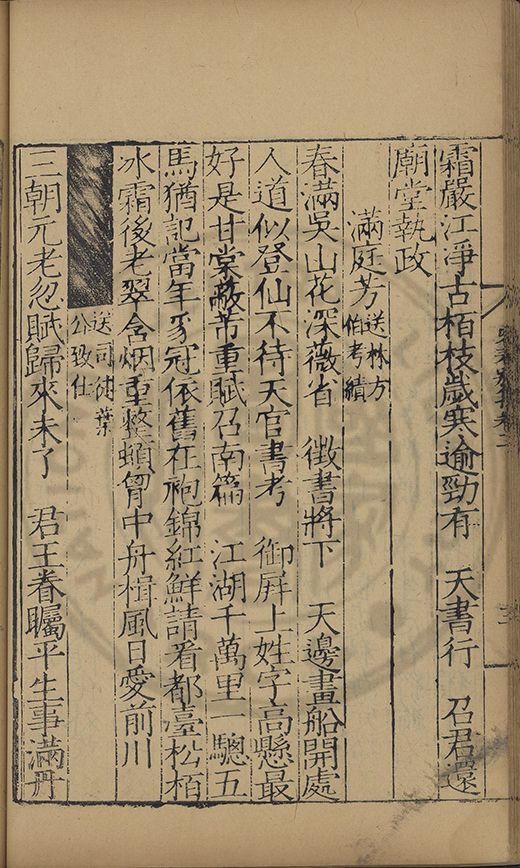 霜嚴江凈古栢枝歲寒逾勁有　天書行　召君還
廟堂執政
滿庭芳送林方
伯考績
春滿吳山花深薇省　徵書將下　天邊畫船開處
人道似登仙不待天官書考　御屏上姓字高懸最
好是甘棠蔽芾重賦召南篇　江湖千萬里一驄五
馬猶記當年豸冠依舊在袍錦紅鮮請看都臺松栢
冰霜後老翠含烟重整頓胷中舟楫風日愛前川
送司徒葉
公致仕
三朝元老忽賦歸來未了　君王眷矚平生事滿丹